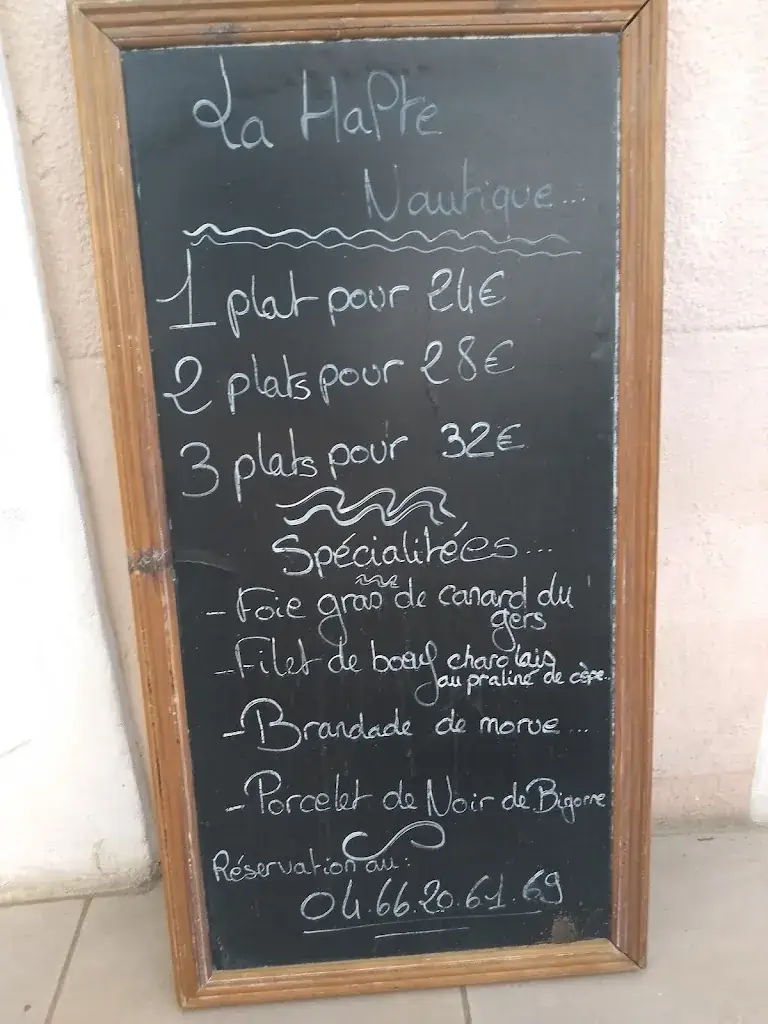 La Halte
Nautique...
1 plat pour 24€
2 plats pour 28€
3 plats pour 32€
Spécialitées...
- Foie gras de canard du
gers
- Filet de bœuf charolais
au praliné de cèpe..
- Brandade de morue...
- Porcelet de Noir de Bigorre
Réservation au:
04.66.20.61.69